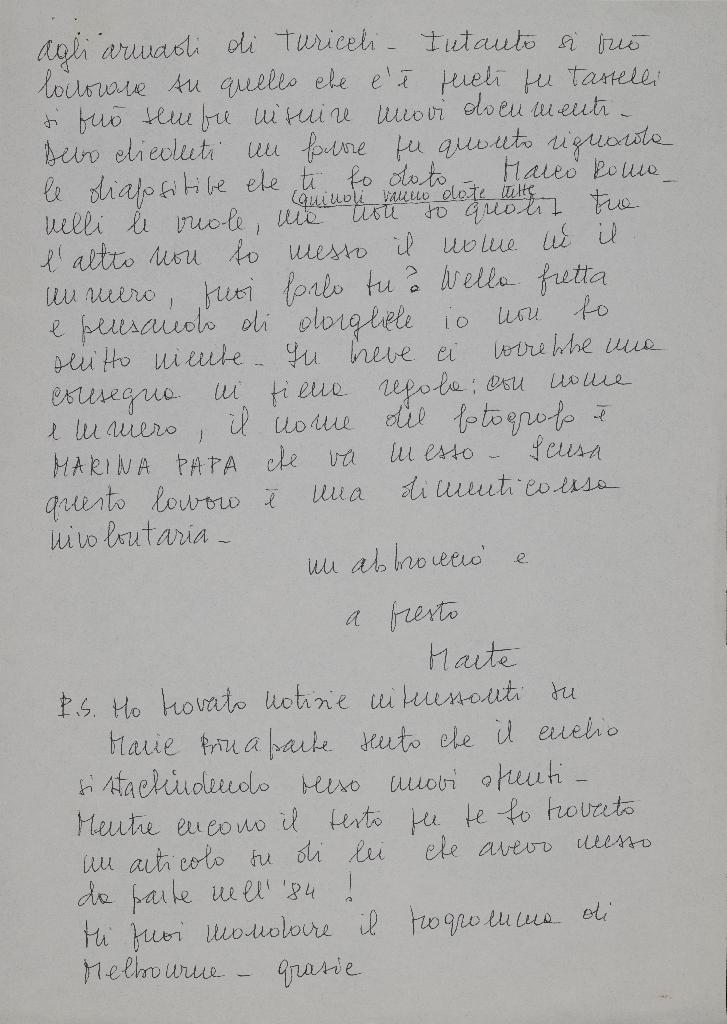 agli armadi di Turicchi - Intanto si può
lavorare su quello che c'è perché per tasselli
si può sempre inserire nuovi documenti -
Devo chiederti un favore per quanto riguarda
le diapositive che ti ho dato - Marco Roma-
(quindi vanno date tutte
nelli le vuole, ma non so quali) tra
l'altro non ho messo il nome né il
numero, puoi farlo tu? Nella fretta
e pensando di dargliele io non ho
scritto niente - In breve ci vorrebbe una
consegna in piena regola: con nome
e numero, il nome del fotografo è
MARINA PAPA che va messo - Scusa
questo lavoro è una dimenticanza
involontaria -
un abbraccio e
a presto
P.S. Ho trovato notizie interessanti su
Marie Bonaparte sento che il cerchio
si sta chiudendo verso nuovi
Mentre cercavo il testo per te ho trovato
un articolo su di lei che avevo messo
da parte nell' '84 !
Mi puoi mandare il programma di
Melbourne - grazie